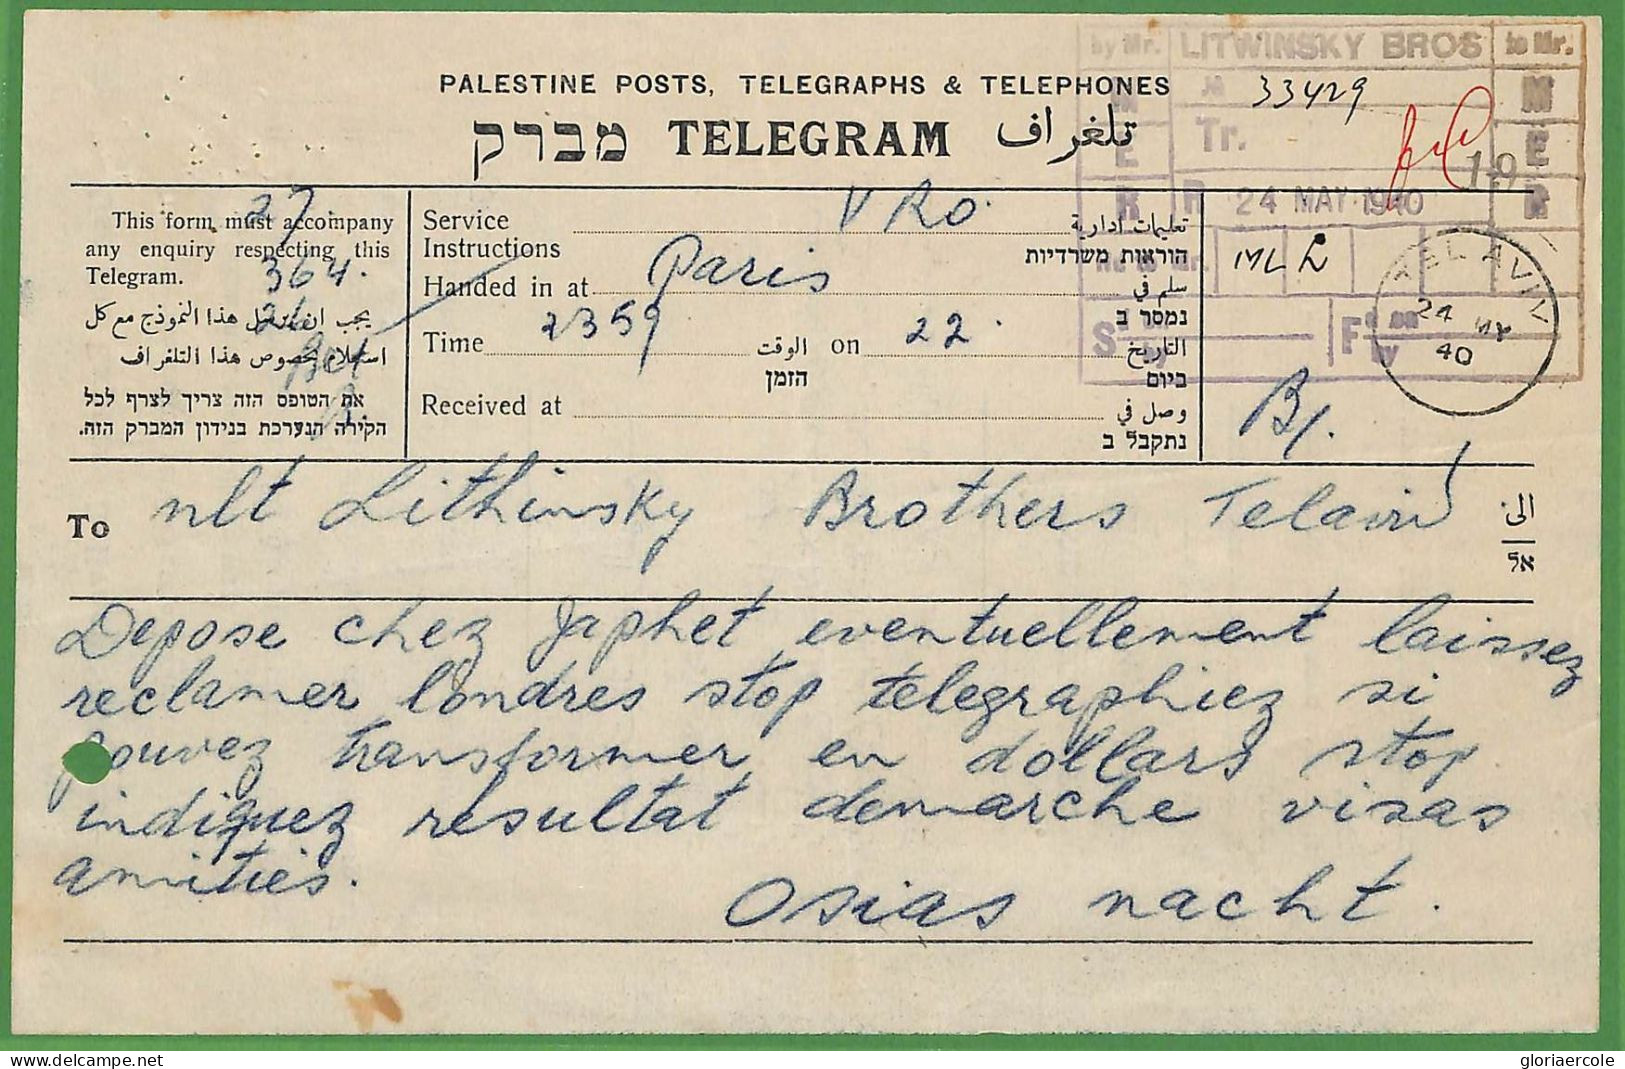 by Mr. LITWINSKY BROS to Mr.
PALESTINE POSTS, TELEGRAPHS & TELEPHONES
33429
מברק TELEGRAM تلغراف
Tr.
19
R 24 MAY 1940
This form must accompany
any enquiry respecting this
Telegram.
27
364.
يجب ان يشمل هذا النموذج مع كل
استعلام بخصوص هذا التلغراف
את הטופס הזה צריך לצרף לכל
חקירה הנערכת בנידון המברק הזה.
Service
Instructions
تعليمات ادارية
הוראות משרדיות
Handed in at Paris سلم في
נמסר ב
Time 2359 الوقت on 22. التاريخ
הזמן
ביום
Received at وصل في
נתקבל ב
TEL AVIV
24 MY
40
To nlt Lithinsky Brothers Telaviv الى
אל
Depose chez Japhet eventuellement laissez
reclamer londres stop telegraphiez si
pouvez transformer en dollars stop
indiquez resultat demarche visas
amities.
Osias nacht.
gloriaercole